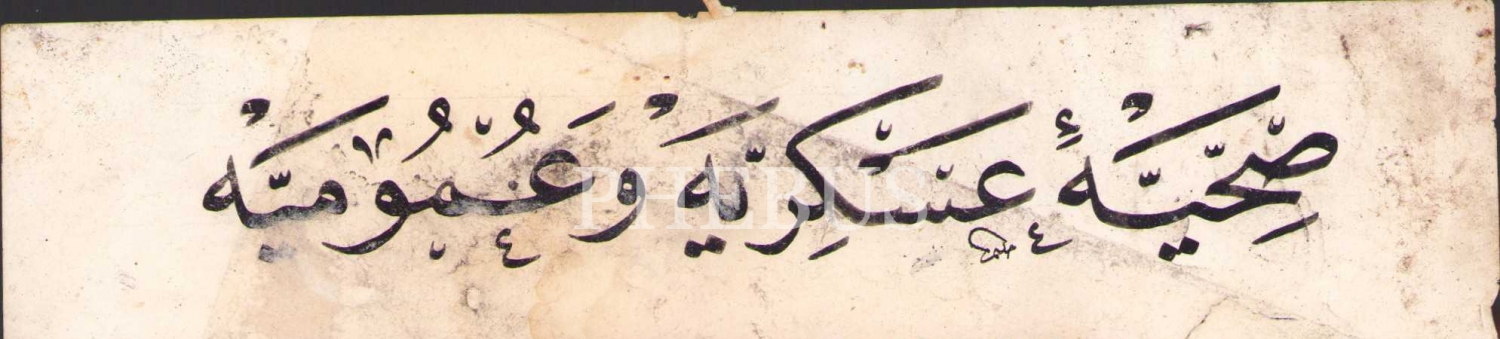 صِحِّيَّهٔ عَسْكَرِيَّه وَعُمُومِيَّه
PHEBUS